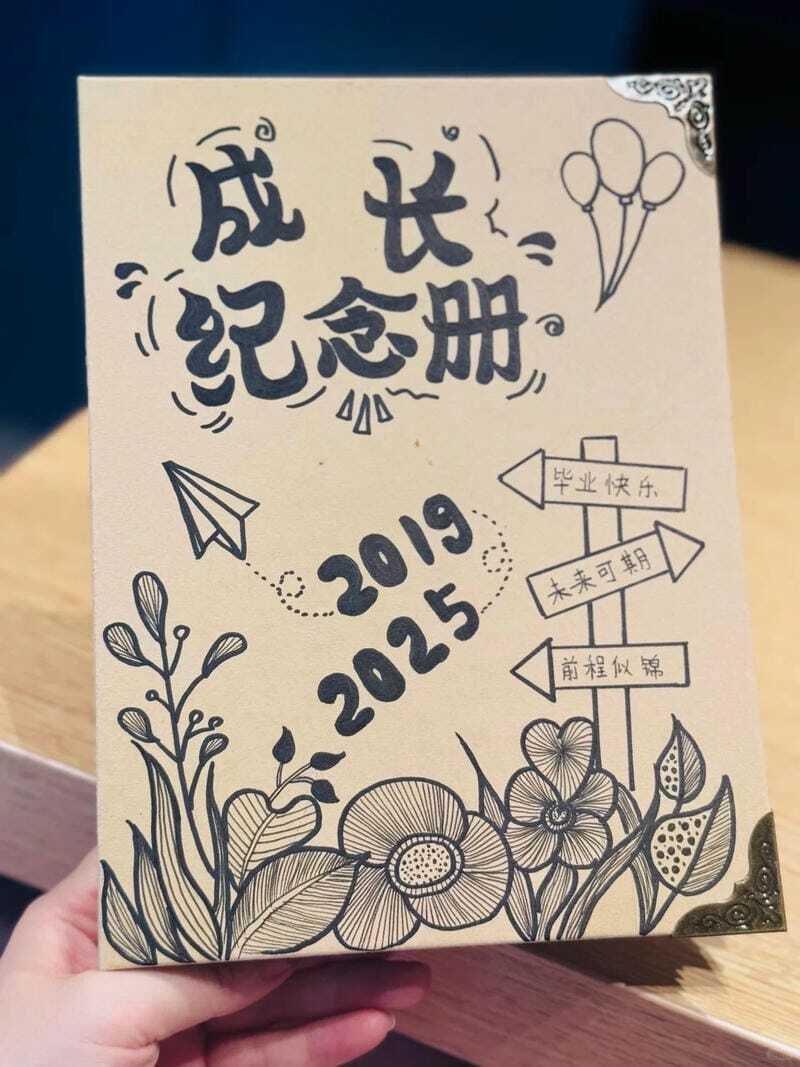 成长
纪念册
2019
2025
毕业快乐
未来可期
前程似锦